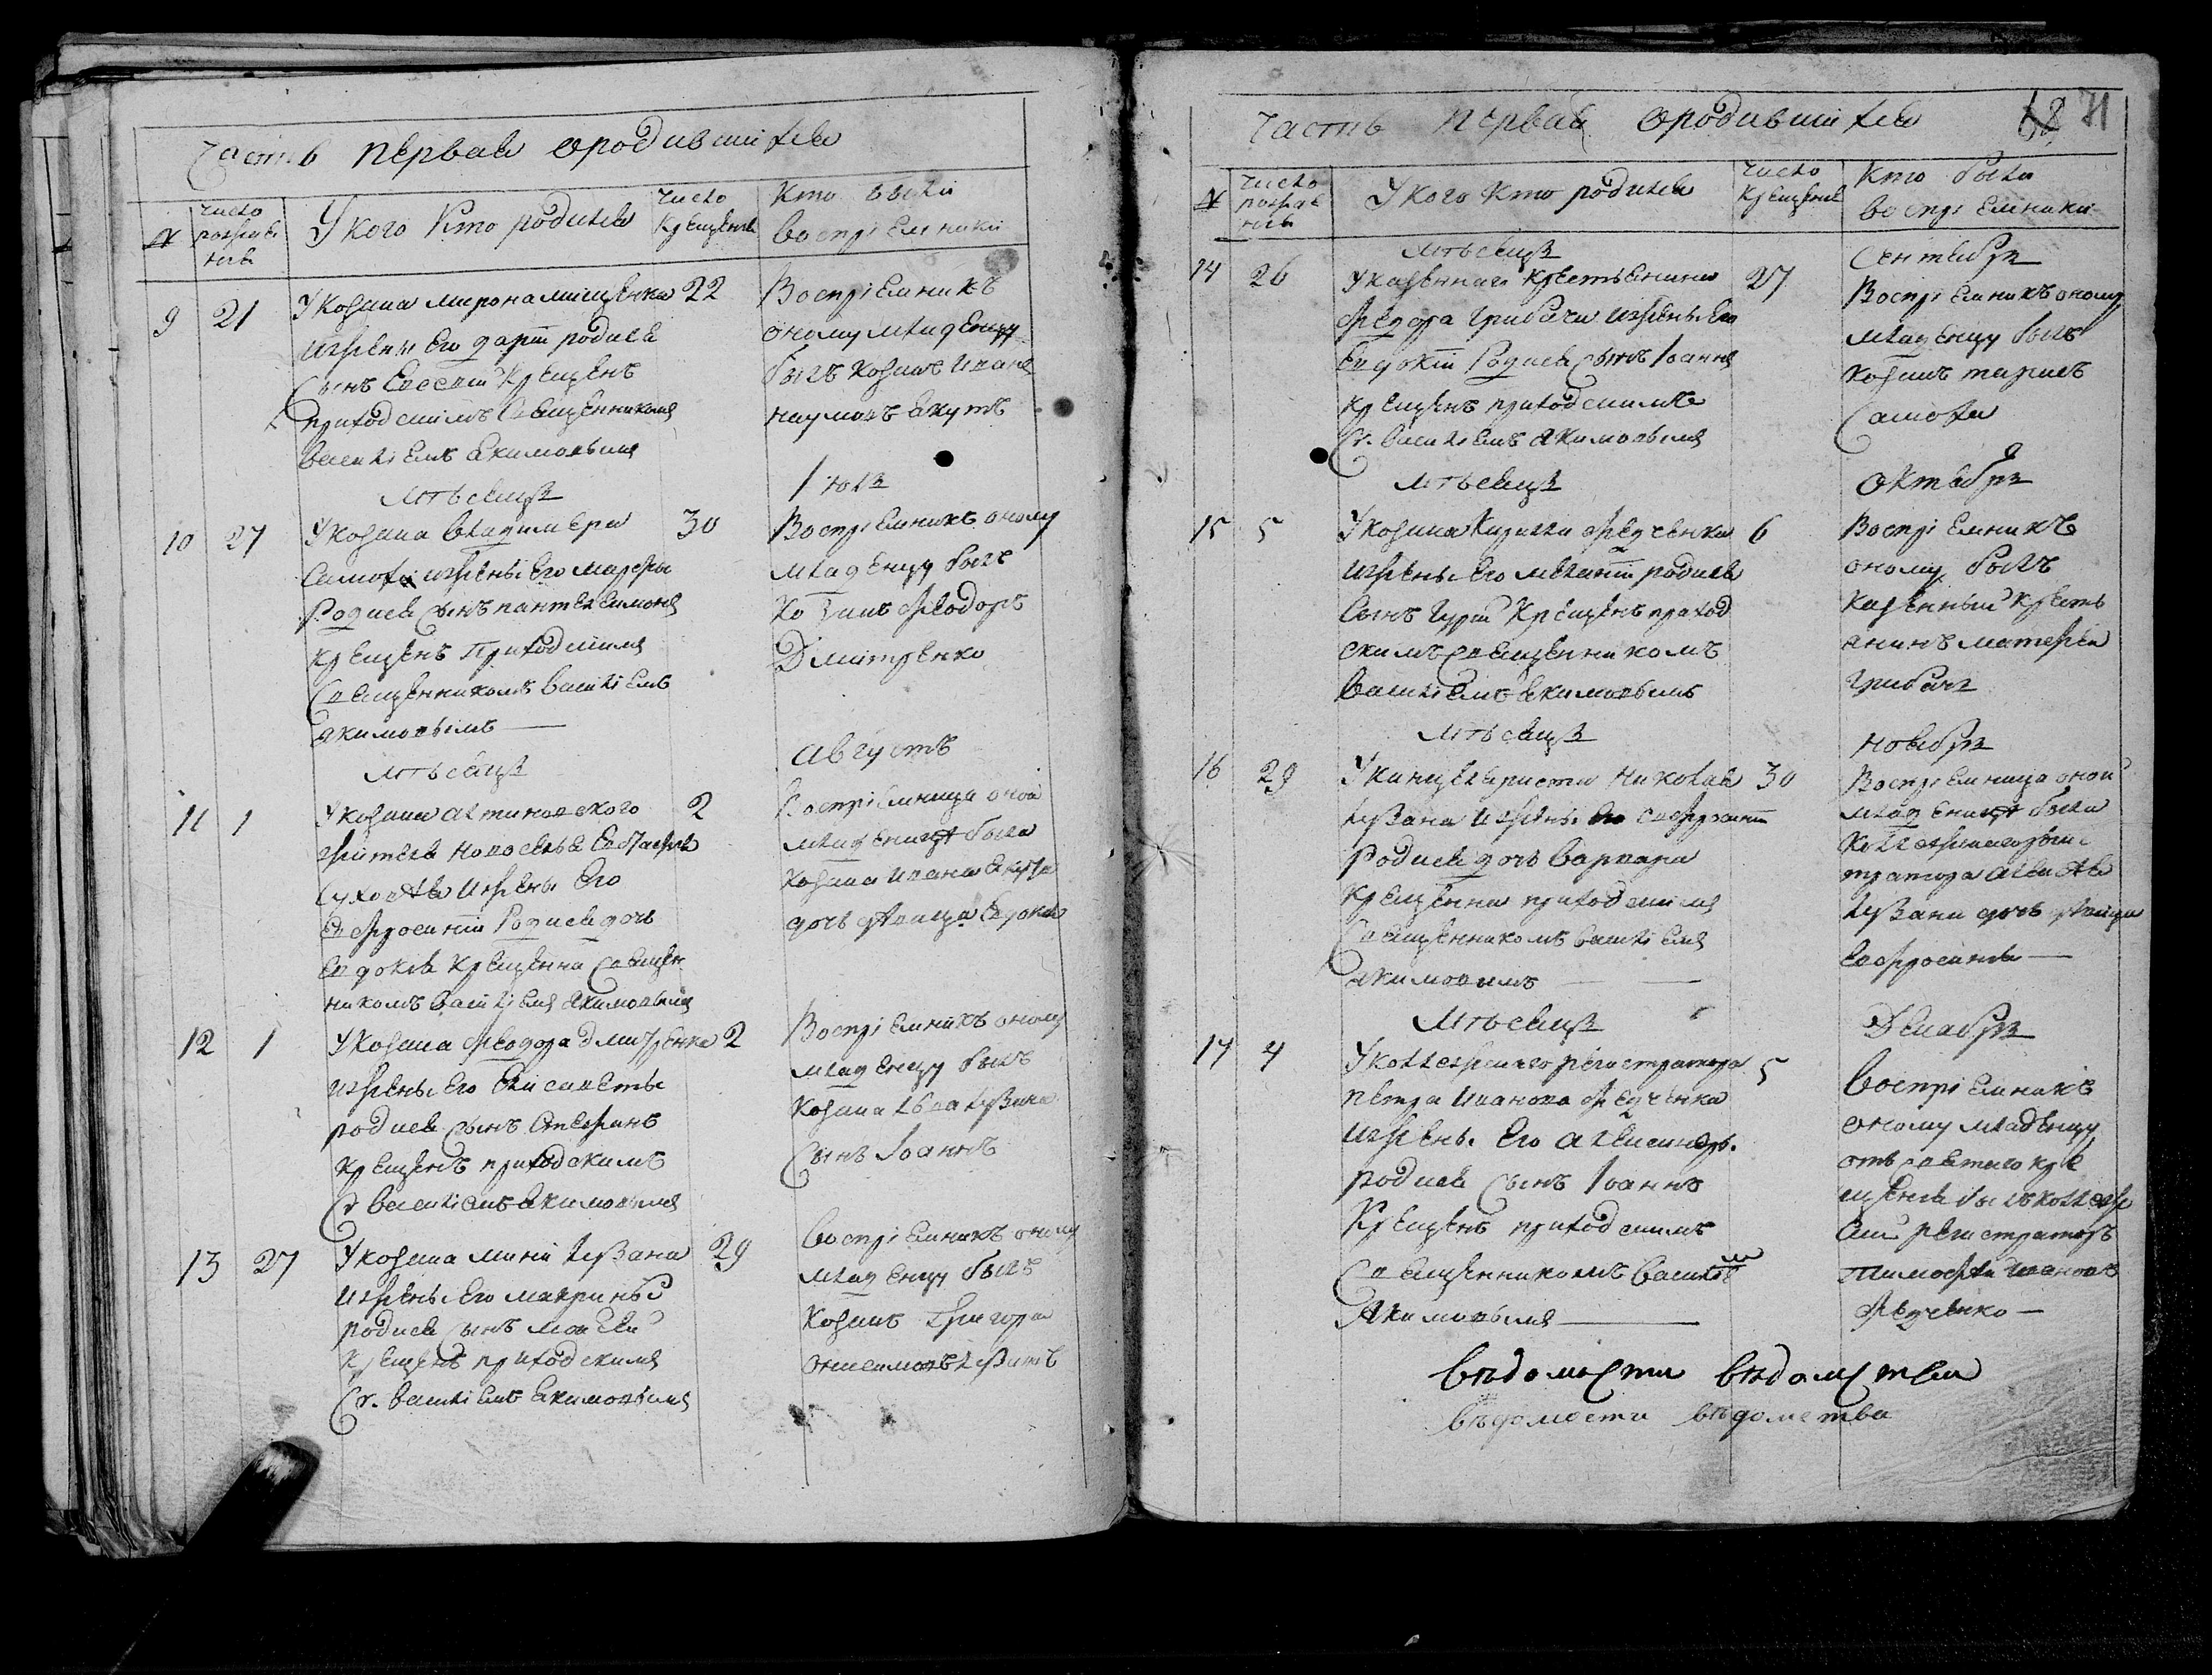 Часть первая ородившихся
№
число рождения
Укого кто родился
число крещения
кто были воспріемники
9 21 Укозака мирона мищенка 22
изжены его даріи родися
сынъ Евсевій крещенъ
приходскимъ священникомъ
василіемъ Якимовымъ
Воспріемникъ
оному младенцу
былъ козакъ иванъ
наумовъ Якутъ
мѣсяцъ Іюль
10 27 Укозака владимера 30
самохи изжены его марфы
Родися сынъ пантелеимонъ
крещенъ Приходскимъ
священникомъ василіемъ
Якимовымъ
Воспріемникъ оному
младенцу былъ
козакъ Феодоръ
Дмитренко
мѣсяцъ августъ
11 1 Укозака 2
жителя
изжены его
Евфросиніи Родися дочь
Евдокія крещенна священ
никомъ василіемъ Якимовымъ
Воспріемница оной
младеницѣ была
козака ивана Якута
дочь дѣвица Евдокія
12 1 Укозака Феодора Дмитренка 2
изжены его Елисаветы
родися сынъ Стефанъ
крещенъ приходскимъ
Св василіемъ Якимовымъ
Воспріемникъ оному
младенцу былъ
козака лева лузана
сынъ Іоаннъ
13 27 Укозака мины лузана 29
изжены его маврины
родися сынъ моисей
крещенъ приходскимъ
Св. василіемъ Якимовымъ
воспріемникъ оному
младенцу былъ
козакъ Григорій
68 71
Часть первая ородившихся
№
число рождения
Укого кто родился
число крещения
кто были воспріемники
мѣсяцъ Сентябрь
14 26 Указенного крестьянина 27
Федора грибача изжены его
Евдокіи Родися сынъ Іоаннъ
крещенъ приходскимъ
Св. василіемъ Якимовымъ
Воспріемникъ оному
младенцу былъ
козакъ тарасъ
самоха
мѣсяцъ Октябрь
15 5 Укозака Кирилла Федченка 6
изжены его меланіи родися
сынъ гурій крещенъ приход
скимъ священникомъ
василіемъ Якимовымъ
Воспріемникъ
оному былъ
казенный кресть
янинъ матфей
грибачъ
мѣсяцъ ноябрь
16 29 Уканцеляриста николая 30
лузана изжены его Евфросиніи
Родися дочь варвара
крещенна приходскимъ
священникомъ василіемъ
Якимовымъ
Воспріемница оной
младеницѣ была
коллежского реги
стратора алексѣя
лузана дочь дѣвица
евфросинія
мѣсяцъ Декабрь
17 4 Уколлежского регистратора 5
петра иванова Федченка
изжены его александры
родися сынъ Іоаннъ
Крещенъ приходскимъ
священникомъ василіемъ
Якимовымъ
воспріемникъ
оному младенцу
отъ святаго кре
щенія былъ коллеж
скій регистраторъ
тимофей ивановъ
Федченко
вѣдомости вѣдомства
вѣдомости вѣдомства